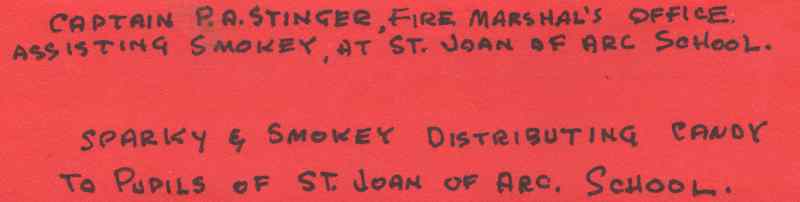 CAPTAIN P.A. STINGER, FIRE MARSHAL'S OFFICE.
ASSISTING SMOKEY, AT ST. JOAN OF ARC SCHOOL.
SPARKY & SMOKEY DISTRIBUTING CANDY
TO PUPILS OF ST. JOAN OF ARC. SCHOOL.